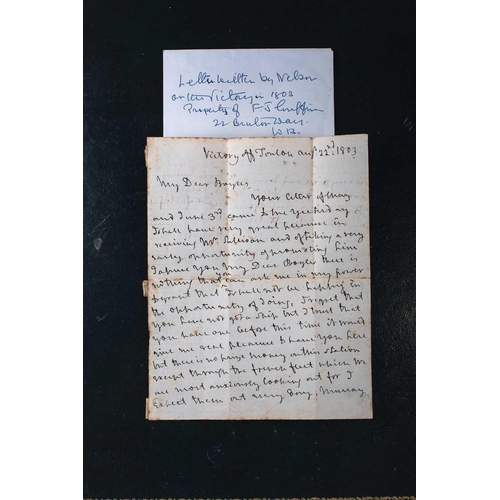 Letter written by Nelson
on the Victory in 1803
Property of F J Griffin
22 Bruton Way
W 13.
Victory off Toulon augt 22d: 1803
My Dear Bayles
Your letter of May
and June 3rd came to me yesterday
I shall have very great pleasure in
receiving Mr. Sullivan and of taking a very
early opportunity of promoting him
I assure you My Dear Bayles there is
nothing that you can ask me in my power
to grant that I shall not be happy in
the opportunity of doing, I regret that
you have not got a ship but I trust that
you have one before this time it would
give me real pleasure to have you here
but there is no prize money on this station
except through the french fleet which we
are most anxiously looking out for I
expect them out every day, Murray